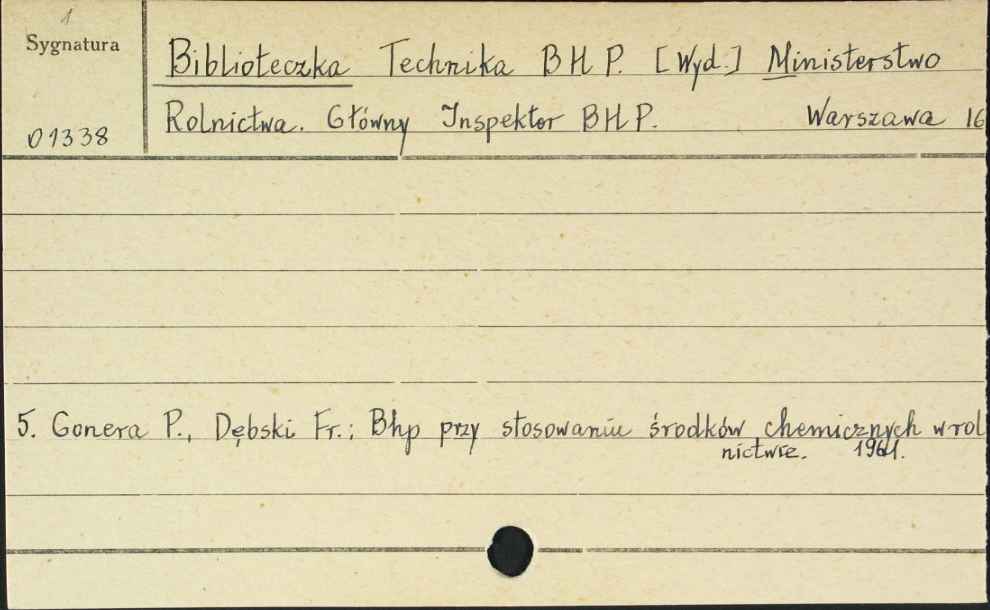 1
Sygnatura
Biblioteczka Technika BHP. [Wyd.] Ministerstwo
01338
Rolnictwa. Główny Inspektor BHP. Warszawa 16
5. Gonera P., Dębski Fr.: Bhp przy stosowaniu środków chemicznych w rol
nictwie. 1961.